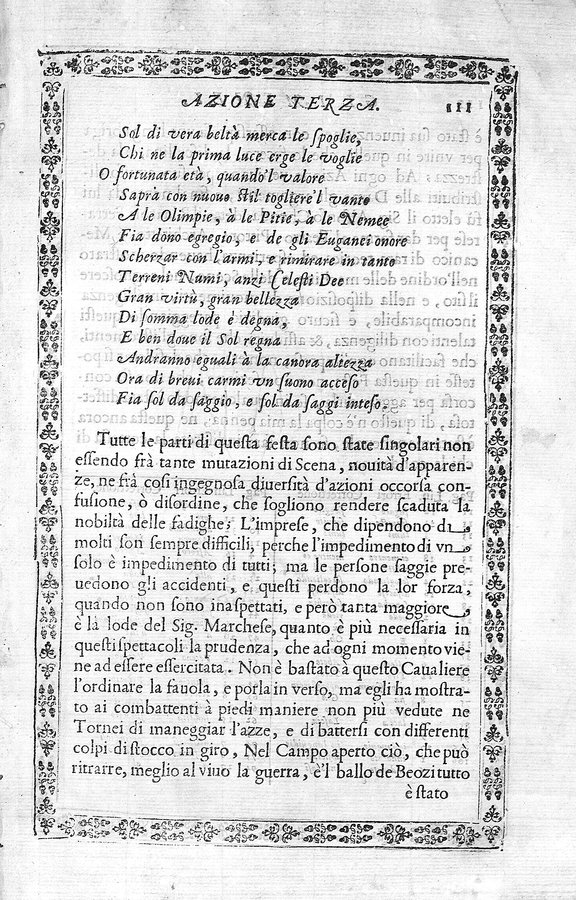 AZIONE TERZA. 111
Sol di vera beltà merca le ſpoglie,
Chi ne la prima luce erge le voglie
O fortunata età, quando'l valore
Saprà con nuouo ſtil togliere'l vanto
A le Olimpie, à le Pitie, à le Nemee
Fia dono egregio, e de gli Euganei onore
Scherzar con l'armi, e rimirare in tanto
Terreni Numi, anzi Celeſti Dee
Gran virtù, gran bellezza
Di ſomma lode è degna,
E ben doue il Sol regna
Andranno eguali à la canora altezza
Ora di breui carmi vn ſuono acceſo
Fia ſol da ſaggio, e ſol da ſaggi inteſo.
Tutte le parti di queſta feſta ſono ſtate ſingolari non
eſſendo frà tante mutazioni di Scena, nouità d'apparen-
ze, ne frà coſi ingegnoſa diuerſità d'azioni occorſa con-
fuſione, ò diſordine, che ſogliono rendere ſcaduta la
nobiltà delle fadighe; L'impreſe, che dipendono di
molti ſon ſempre difficili, perche l'impedimento di vn
ſolo è impedimento di tutti; ma le perſone ſaggie pre-
uedono gli accidenti, e queſti perdono la lor forza,
quando non ſono inaſpettati, e però tanta maggiore
è la lode del Sig. Marcheſe, quanto è più neceſſaria in
queſti ſpettacoli la prudenza, che ad ogni momento vie-
ne ad eſſere eſſercitata. Non è baſtato à queſto Caualiere
l'ordinare la fauola, e porla in verſo, ma egli ha moſtra-
to ai combattenti à piedi maniere non più vedute ne
Tornei di maneggiar l'azze, e di batterſi con differenti
colpi di ſtocco in giro, Nel Campo aperto ciò, che può
ritrarre, meglio al viuo la guerra, è'l ballo de Beozi tutto
è ſtato